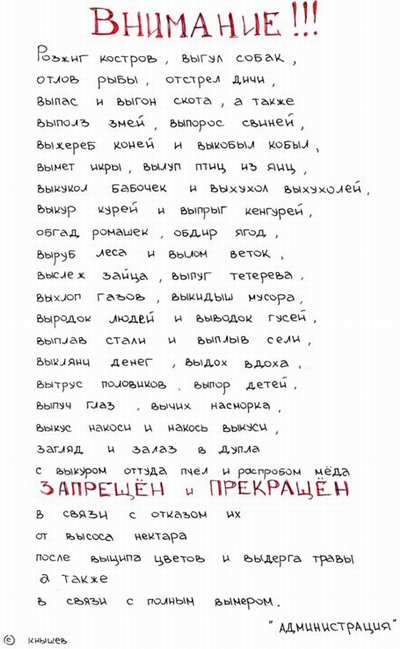 ВНИМАНИЕ!!!
Розжиг костров, выгул собак,
отлов рыбы, отстрел дичи,
выпас и выгон скота, а также
выполз змей, выпорос свиней,
выжереб коней и выкобыл кобыл,
вымет икры, вылуп птиц из яиц,
выкукол бабочек и выхухол выхухолей,
выкур курей и выпрыг кенгурей,
обгад ромашек, обдир ягод,
выруб леса и вылом веток,
выслеж зайца, выпуг тетерева,
выхлоп газов, выкидыш мусора,
выродок людей и выводок гусей,
выплав стали и выплыв сели,
выклянч денег, выдох вдоха,
вытрус половиков, выпор детей,
выпуч глаз, вычих насморка,
выкус накоси и накось выкуси,
загляд и залаз в дупла
с выкуром оттуда пчел и распробом мёда
ЗАПРЕЩЁН и ПРЕКРАЩЁН
в связи с отказом их
от высоса нектара
после выщипа цветов и выдерга травы
а также
в связи с полным вымером.
"АДМИНИСТРАЦИЯ"
© кнышев